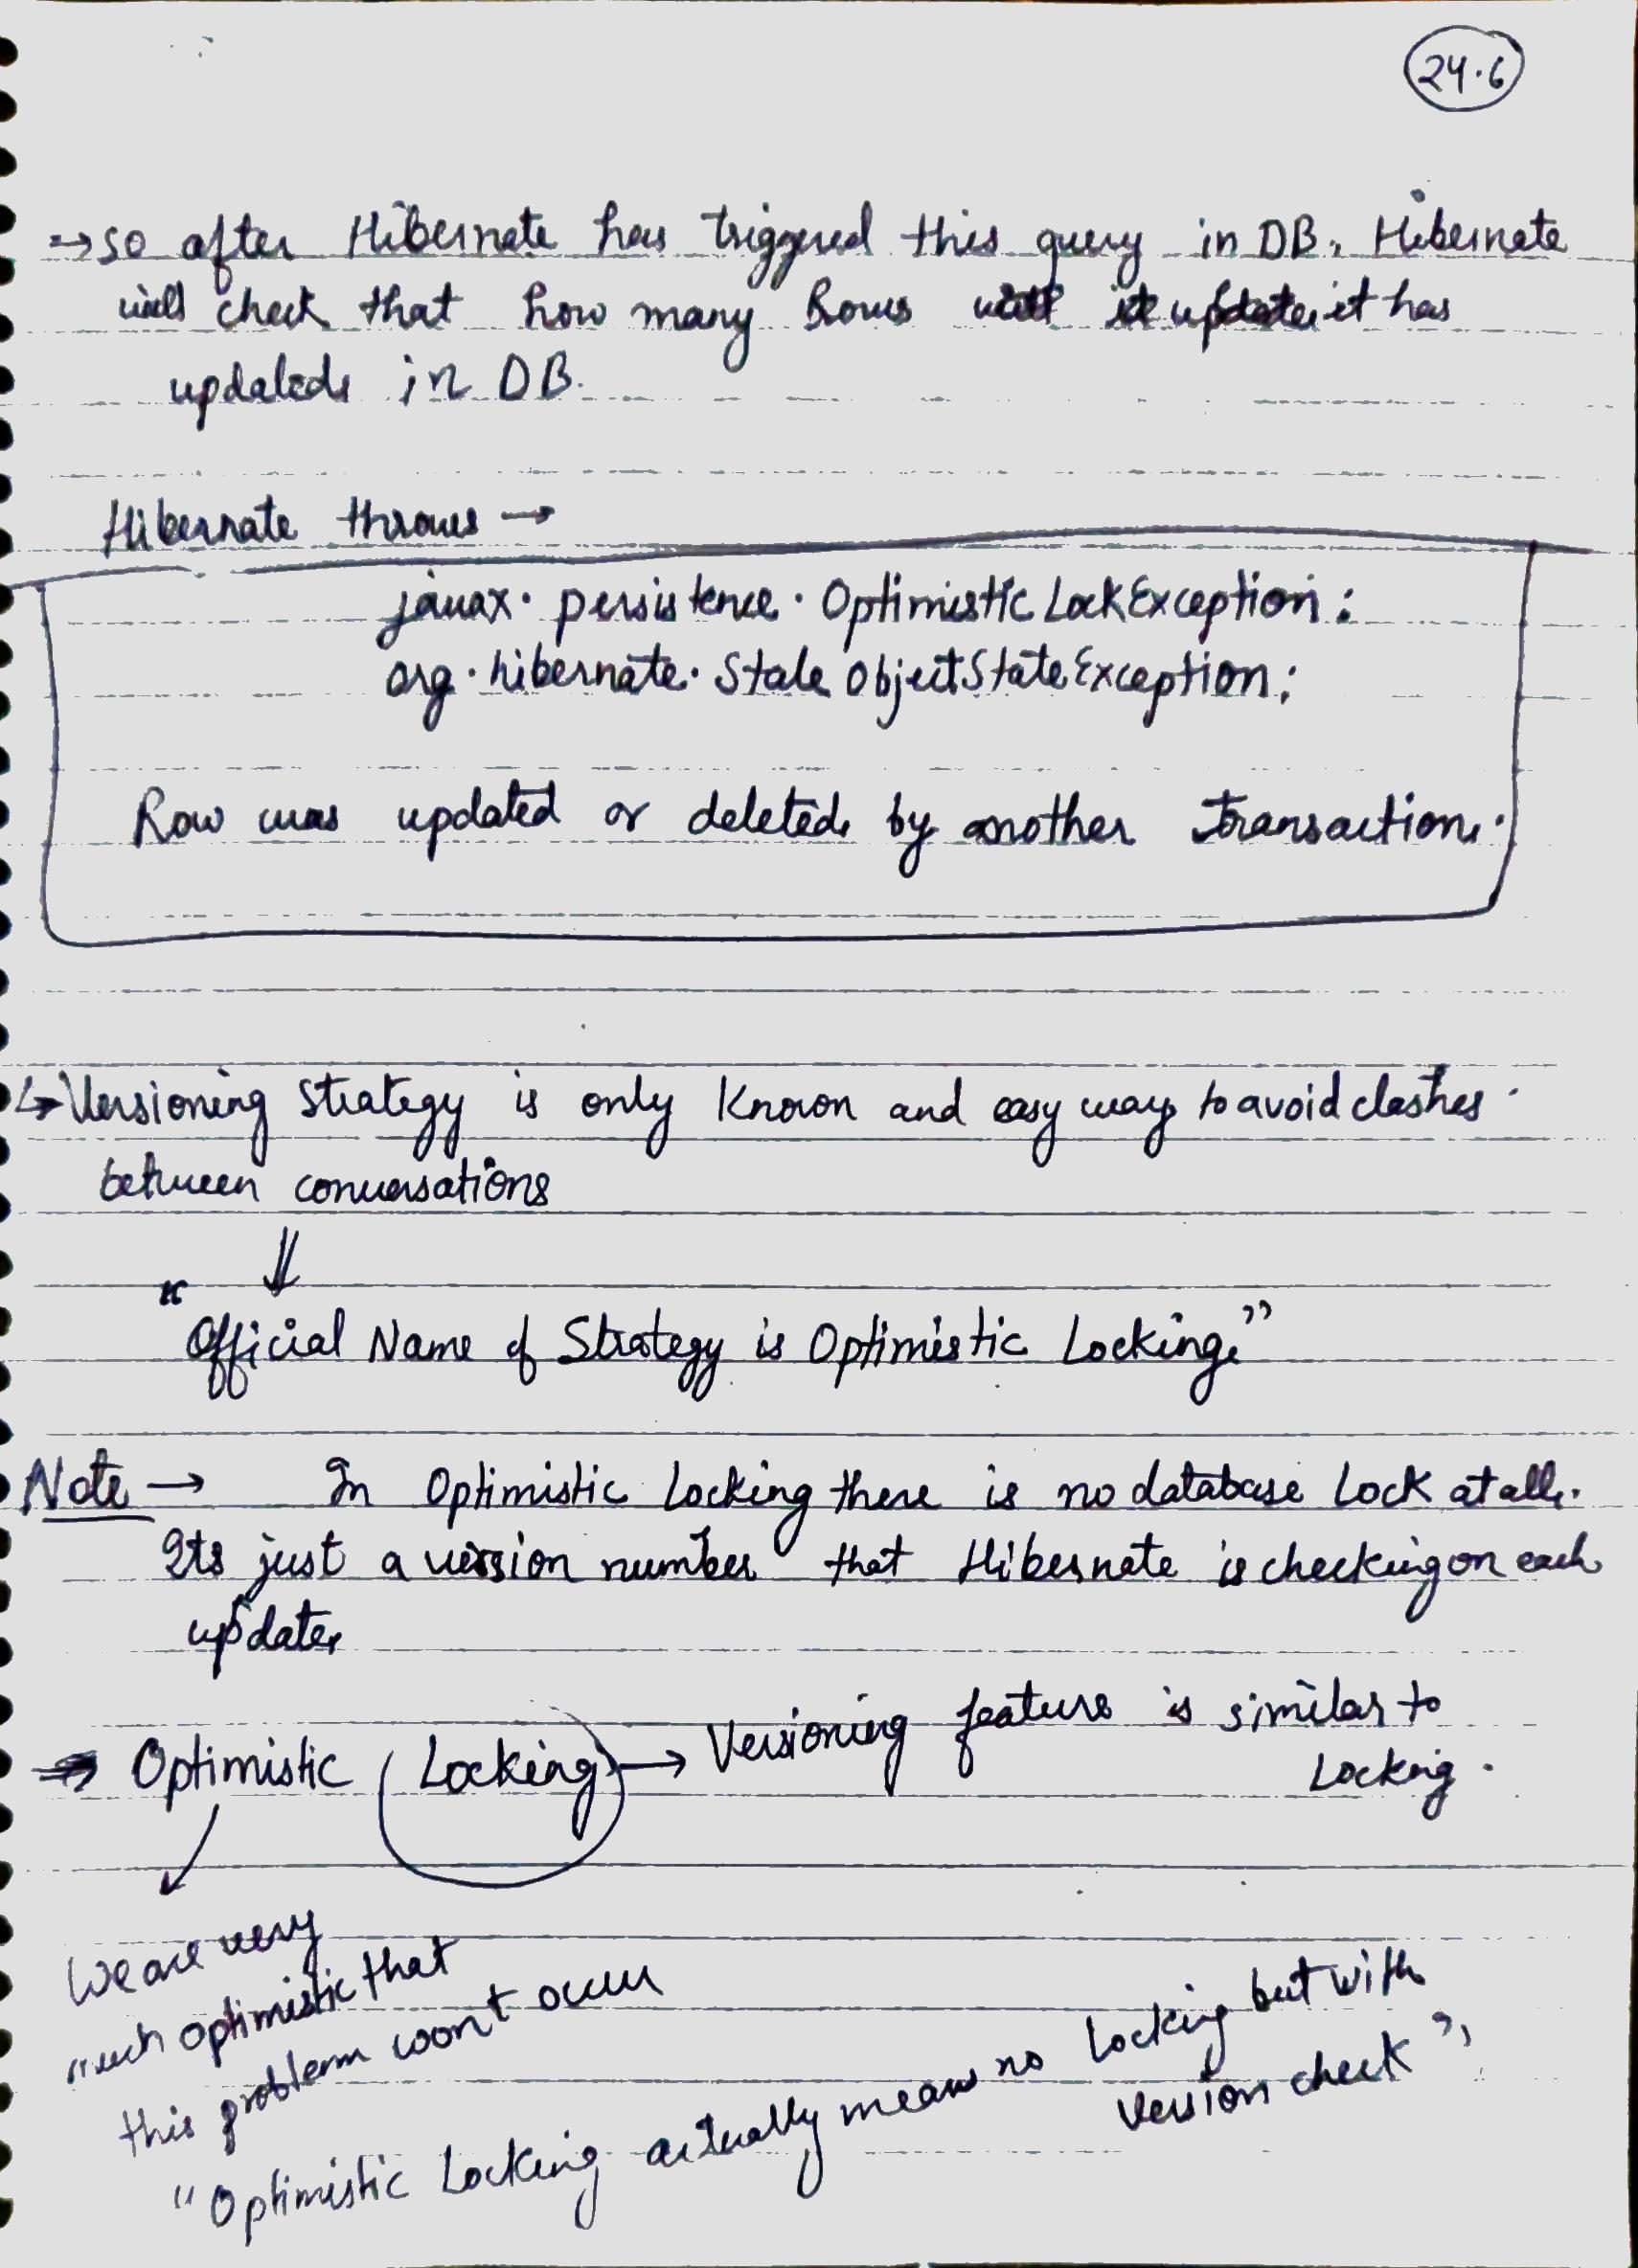 24.6
→ so after Hibernate has triggered this query in DB, Hibernate
will check that how many Rows will it update it has
updated in DB.
Hibernate throws →
javax. persistence. OptimisticLockException:
org. hibernate. StaleObjectStateException:
Row was updated or deleted by another Transaction.
↳ Versioning Strategy is only Known and easy way to avoid clashes
between conversations
⇓
"Official Name of Strategy is Optimistic Locking"
Note → In Optimistic Locking there is no database Lock at all.
Its just a version number that Hibernate is checking on each
update
⇒ Optimistic (Locking) → Versioning feature is similar to
Locking.
We are very
much optimistic that
this problem won't occur
"Optimistic Locking actually means no Locking but with
version check"